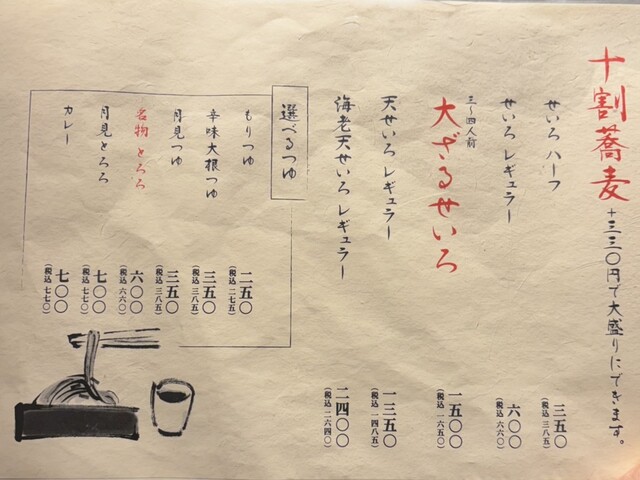 十割蕎麦 +三三〇円で大盛りにできます。
せいろ ハーフ 三五〇
(税込 三八五)
せいろ レギュラー 六〇〇
(税込 六六〇)
三〜四人前
大ざるせいろ 一五〇〇
(税込 一六五〇)
天せいろ レギュラー 一三五〇
(税込 一四八五)
海老天せいろ レギュラー 二四〇〇
(税込 二六四〇)
選べるつゆ
もりつゆ 二五〇
(税込 二七五)
辛味大根つゆ 三五〇
(税込 三八五)
月見つゆ 三五〇
(税込 三八五)
名物 とろろ 六〇〇
(税込 六六〇)
月見とろろ 七〇〇
(税込 七七〇)
カレー 七〇〇
(税込 七七〇)